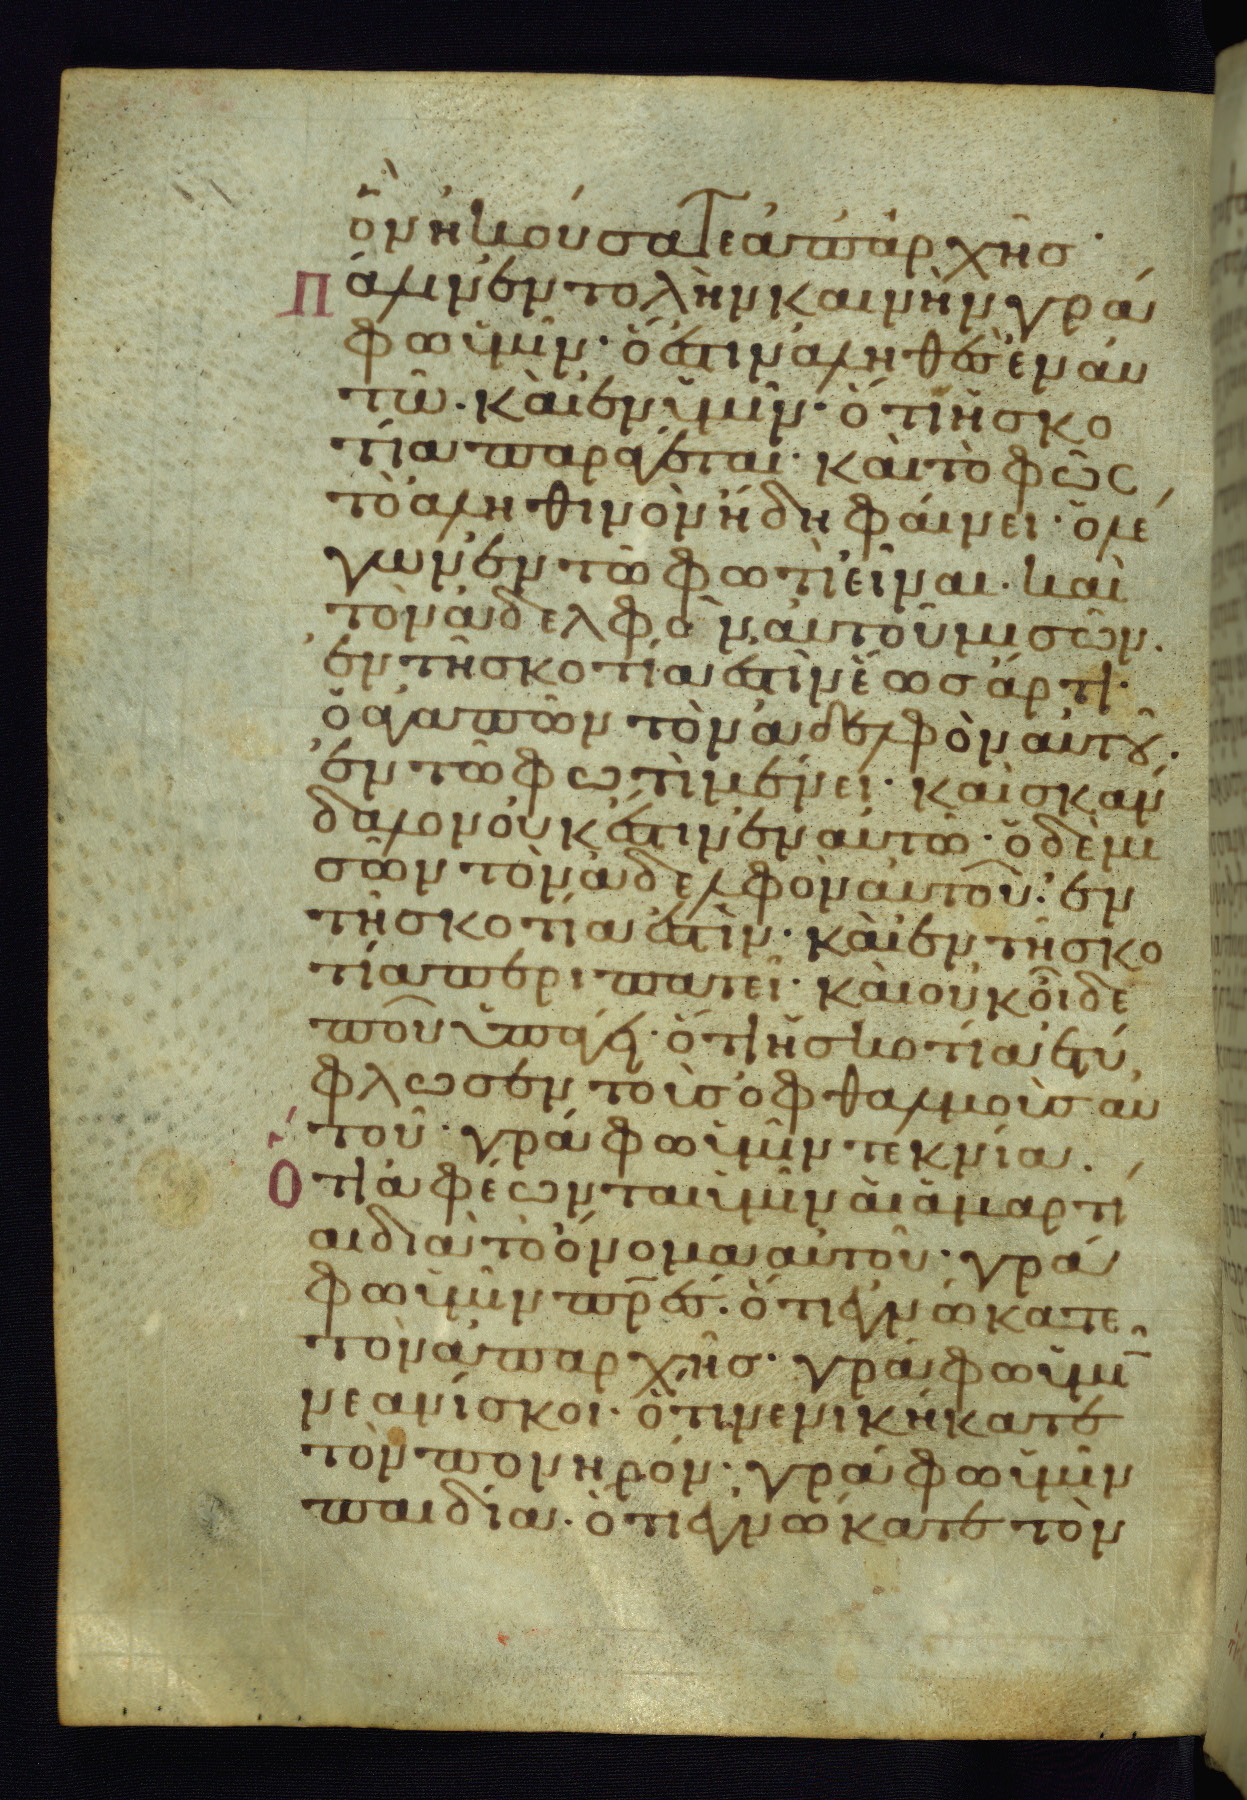 ὃν ἠκούσατε ἀπ' ἀρχῆς·
Πάλιν ἐντολὴν καινὴν γρά
φω ὑμῖν· ὅ ἐστιν ἀληθὲς ἐν αυ
τῶ. καὶ ἐν ὑμῖν· ὅτι ἡ σκο
τία παράγεται· καὶ τὸ φῶς
τὸ αληθινὸν ἤδη φαίνει· ὁ λέ
γων ἐν τῶ φωτὶ εἶναι. καὶ
τὸν ἀδελφὸν αὐτοῦ μισῶν.
ἐν τῆ σκοτία ἐστὶν ἕως ἄρτι·
ὁ ἀγαπῶν τὸν ἀδελφὸν αὐτοῦ.
ἐν τῶ φωτὶ μένει· καὶ σκάν
δαλον οὐκ ἔστιν ἐν αὐτῶ· ὁ δὲ μι
σῶν τὸν ἀδελφὸν αὐτοῦ· ἐν
τῆ σκοτία ἐστὶν· καὶ ἐν τῆ σκο
τία περιπατεῖ· καὶ οὐκ οἶδε
ποῦ ὑπάγει· ὅτι ἡ σκοτία ἐτύ
φλωσεν τοὺς ὀφθαλμοὺς αὐ
τοῦ· γράφω ὑμῖν τεκνία.
Ὅτι ἀφέωνται ὑμῖν αἱ ἁμαρτί
αι διὰ τὸ ὄνομα αὐτοῦ· γρά
φω ὑμῖν πρ̅ες. ὅτι ἐγνώκατε
τὸν ἀπαρχῆς· γράφω ὑμῖ̅
νεανίσκοι· ὅτι νενικήκατε
τὸν πονηρόν· γράφω ὑμῖν
παιδία. ὅτι ἐγνώκατε τὸν